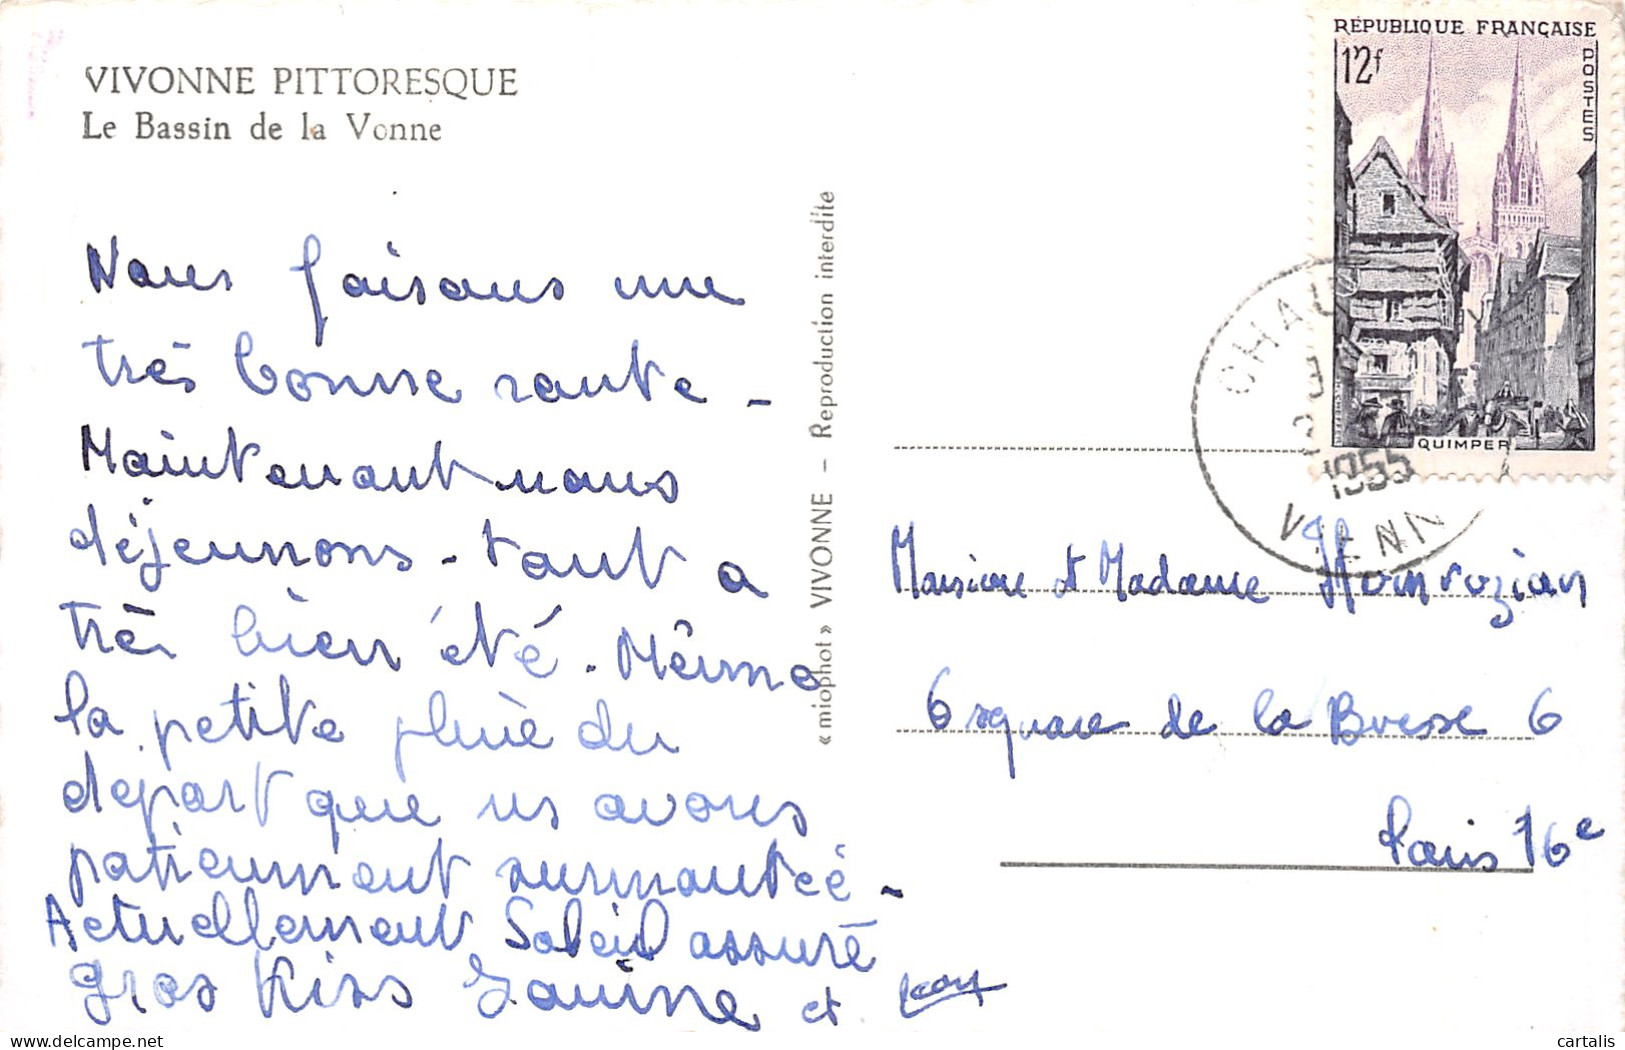 VIVONNE PITTORESQUE
Le Bassin de la Vonne
Nous faisons une
très bonne route -
Maintenant nous
déjeunons - tout a
très bien été. Même
la petite pluie du
départ que ns avons
patiemment surmontée -
Actuellement Soleil assuré
gros Kiss Janine et
« miophot » VIVONNE - Reproduction interdite
RÉPUBLIQUE FRANÇAISE
12f
POSTES
QUIMPER
1955
VIENN
Monsieur et Madame
6 square de la Bresse 6
Paris 16e
cartalis